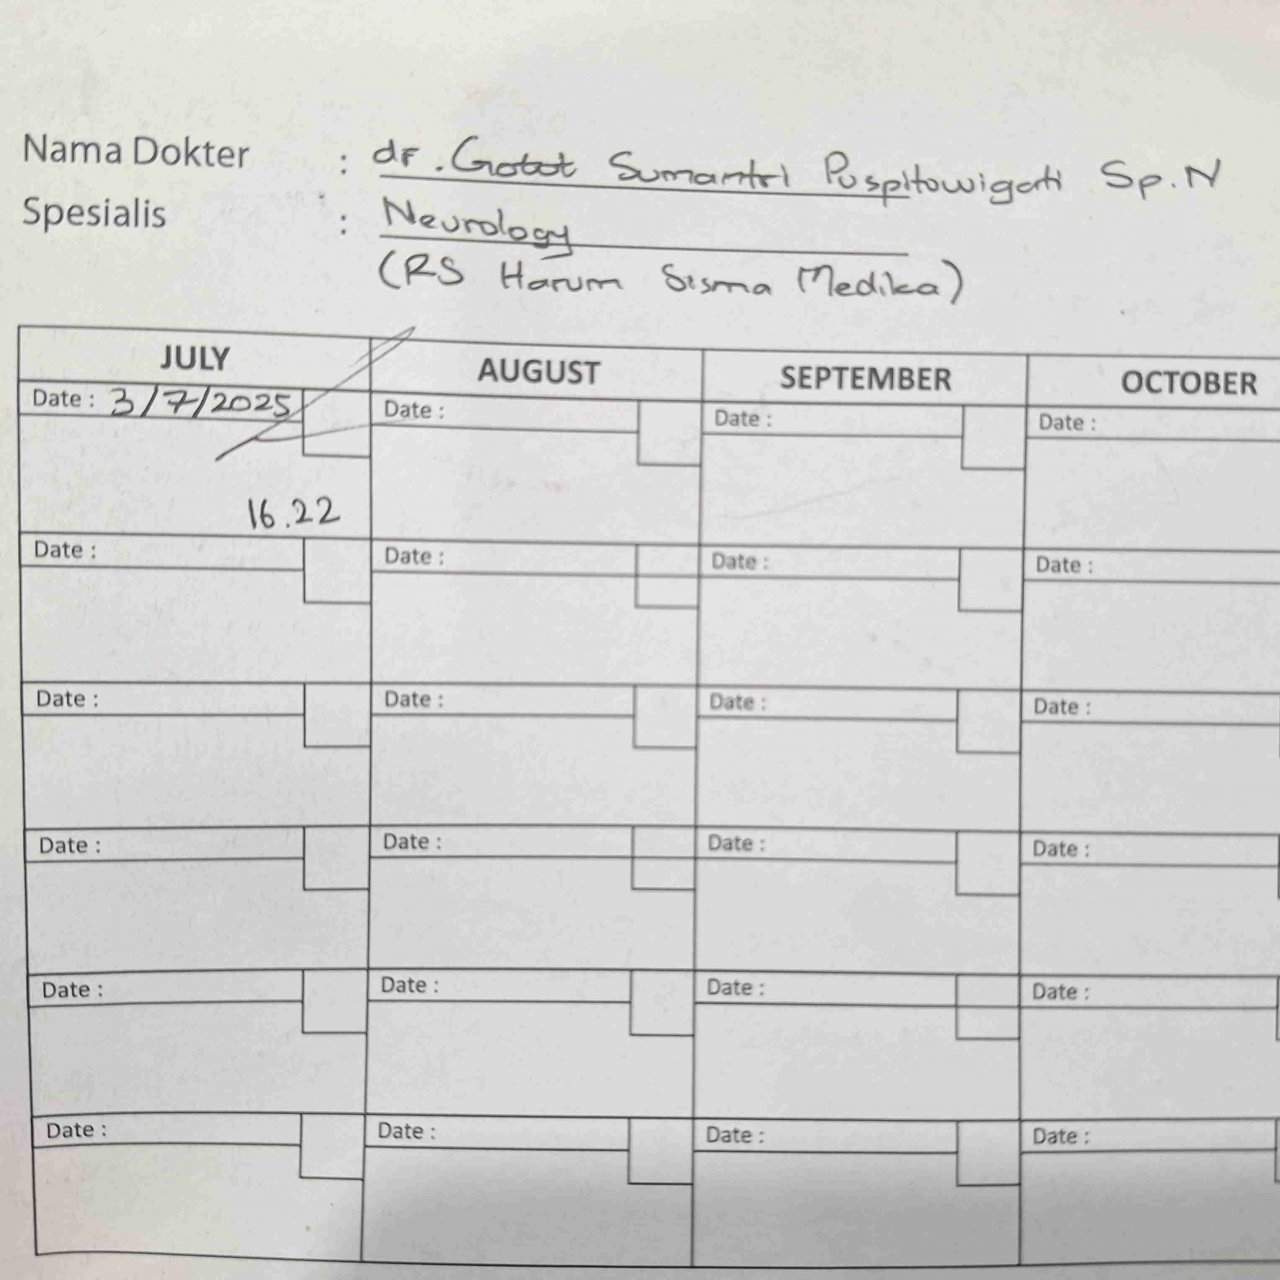 Nama Dokter : dr. Gatot Sumantri Puspitowigati Sp.N
Spesialis : Neurology
(RS Harum Sisma Medika)
JULY AUGUST SEPTEMBER OCTOBER
Date : 3/7/2025 Date : Date : Date :
16.22
Date : Date : Date : Date :
Date : Date : Date : Date :
Date : Date : Date : Date :
Date : Date : Date : Date :
Date : Date : Date : Date :